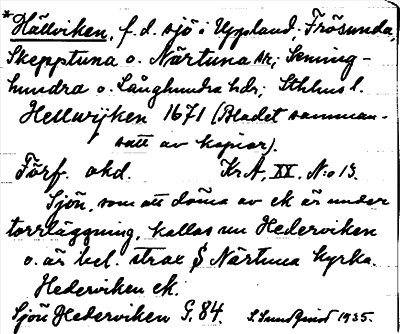 *Hällviken, f.d. sjö i Uppland; Frösunda,
Skepptuna o. Närtuna snr; Seming-
hundra o. Långhundra hdr; Sthlms l.
Hellwijken 1671 (Bladet samman-
satt av kopior).
Förf. okd. KrA, XX, No 13.
Sjön, som att döma av ek är under
torrläggning, kallas nu Hederviken
o. är bel. strax S Närtuna kyrka.
Hederviken ek.
Sjön Hederviken G. 84. 1935.